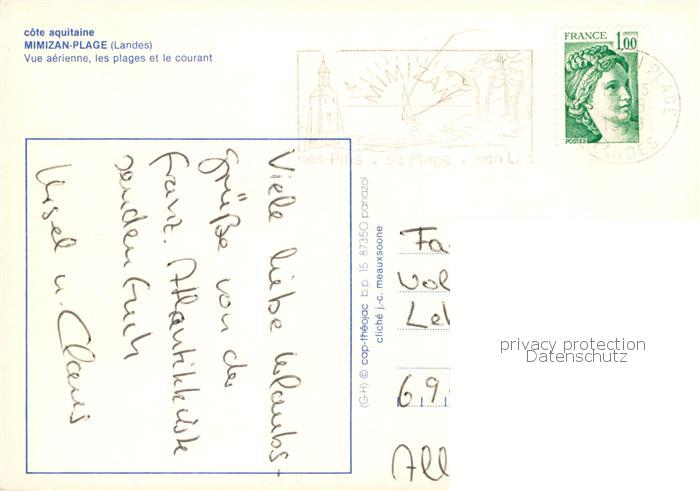 côte aquitaine
MIMIZAN-PLAGE (Landes)
Vue aérienne, les plages et le courant
MIMIZAN
ses Pins . sa Plage . son Lac
FRANCE
1,00
POSTES
PLAGE
LANDES
Viele liebe Urlaubs-
grüße von der
franz. Atlantikküste
senden Euch
Ursel u. Claus
(G-H) © cap-théojac b.p. 15 87350 panazol
cliché j.-c. meauxsoone
Fa
Vol
Le
69
All
privacy protection
Datenschutz